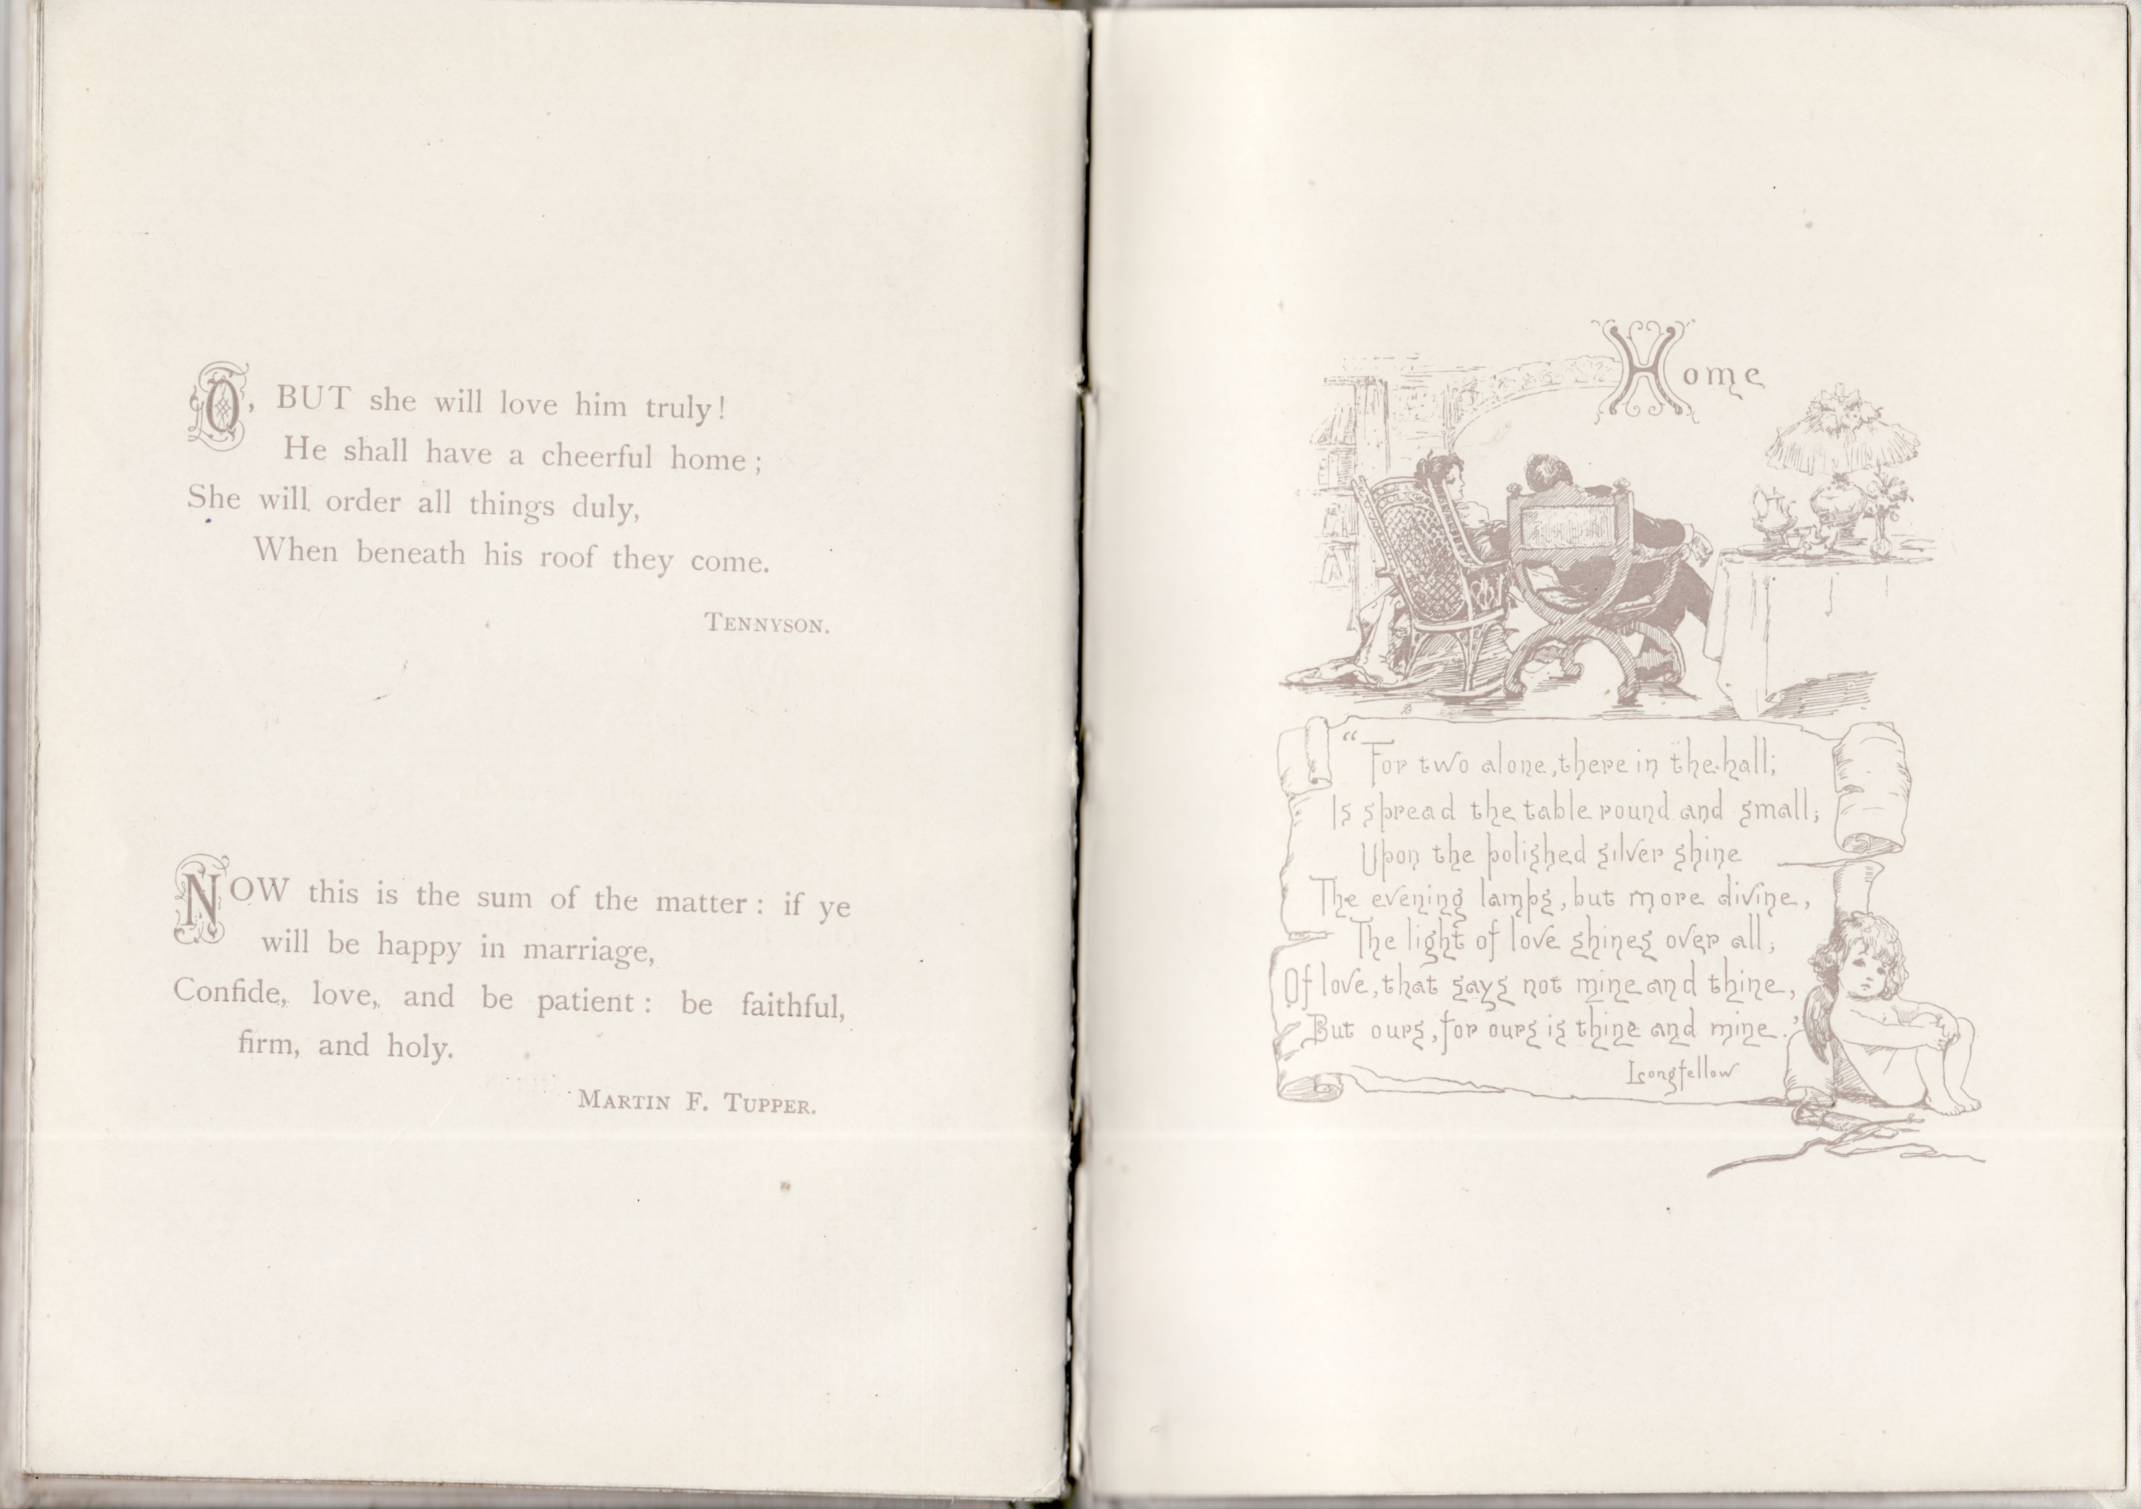 O, BUT she will love him truly!
He shall have a cheerful home;
She will order all things duly,
When beneath his roof they come.
TENNYSON.
NOW this is the sum of the matter: if ye
will be happy in marriage,
Confide, love, and be patient: be faithful,
firm, and holy.
MARTIN F. TUPPER.
Home
"For two alone, there in the hall;
Is spread the table round and small;
Upon the polished silver shine
The evening lamps, but more divine,
The light of love shines over all;
Of love, that says not mine and thine,
But ours, for ours is thine and mine."
Longfellow